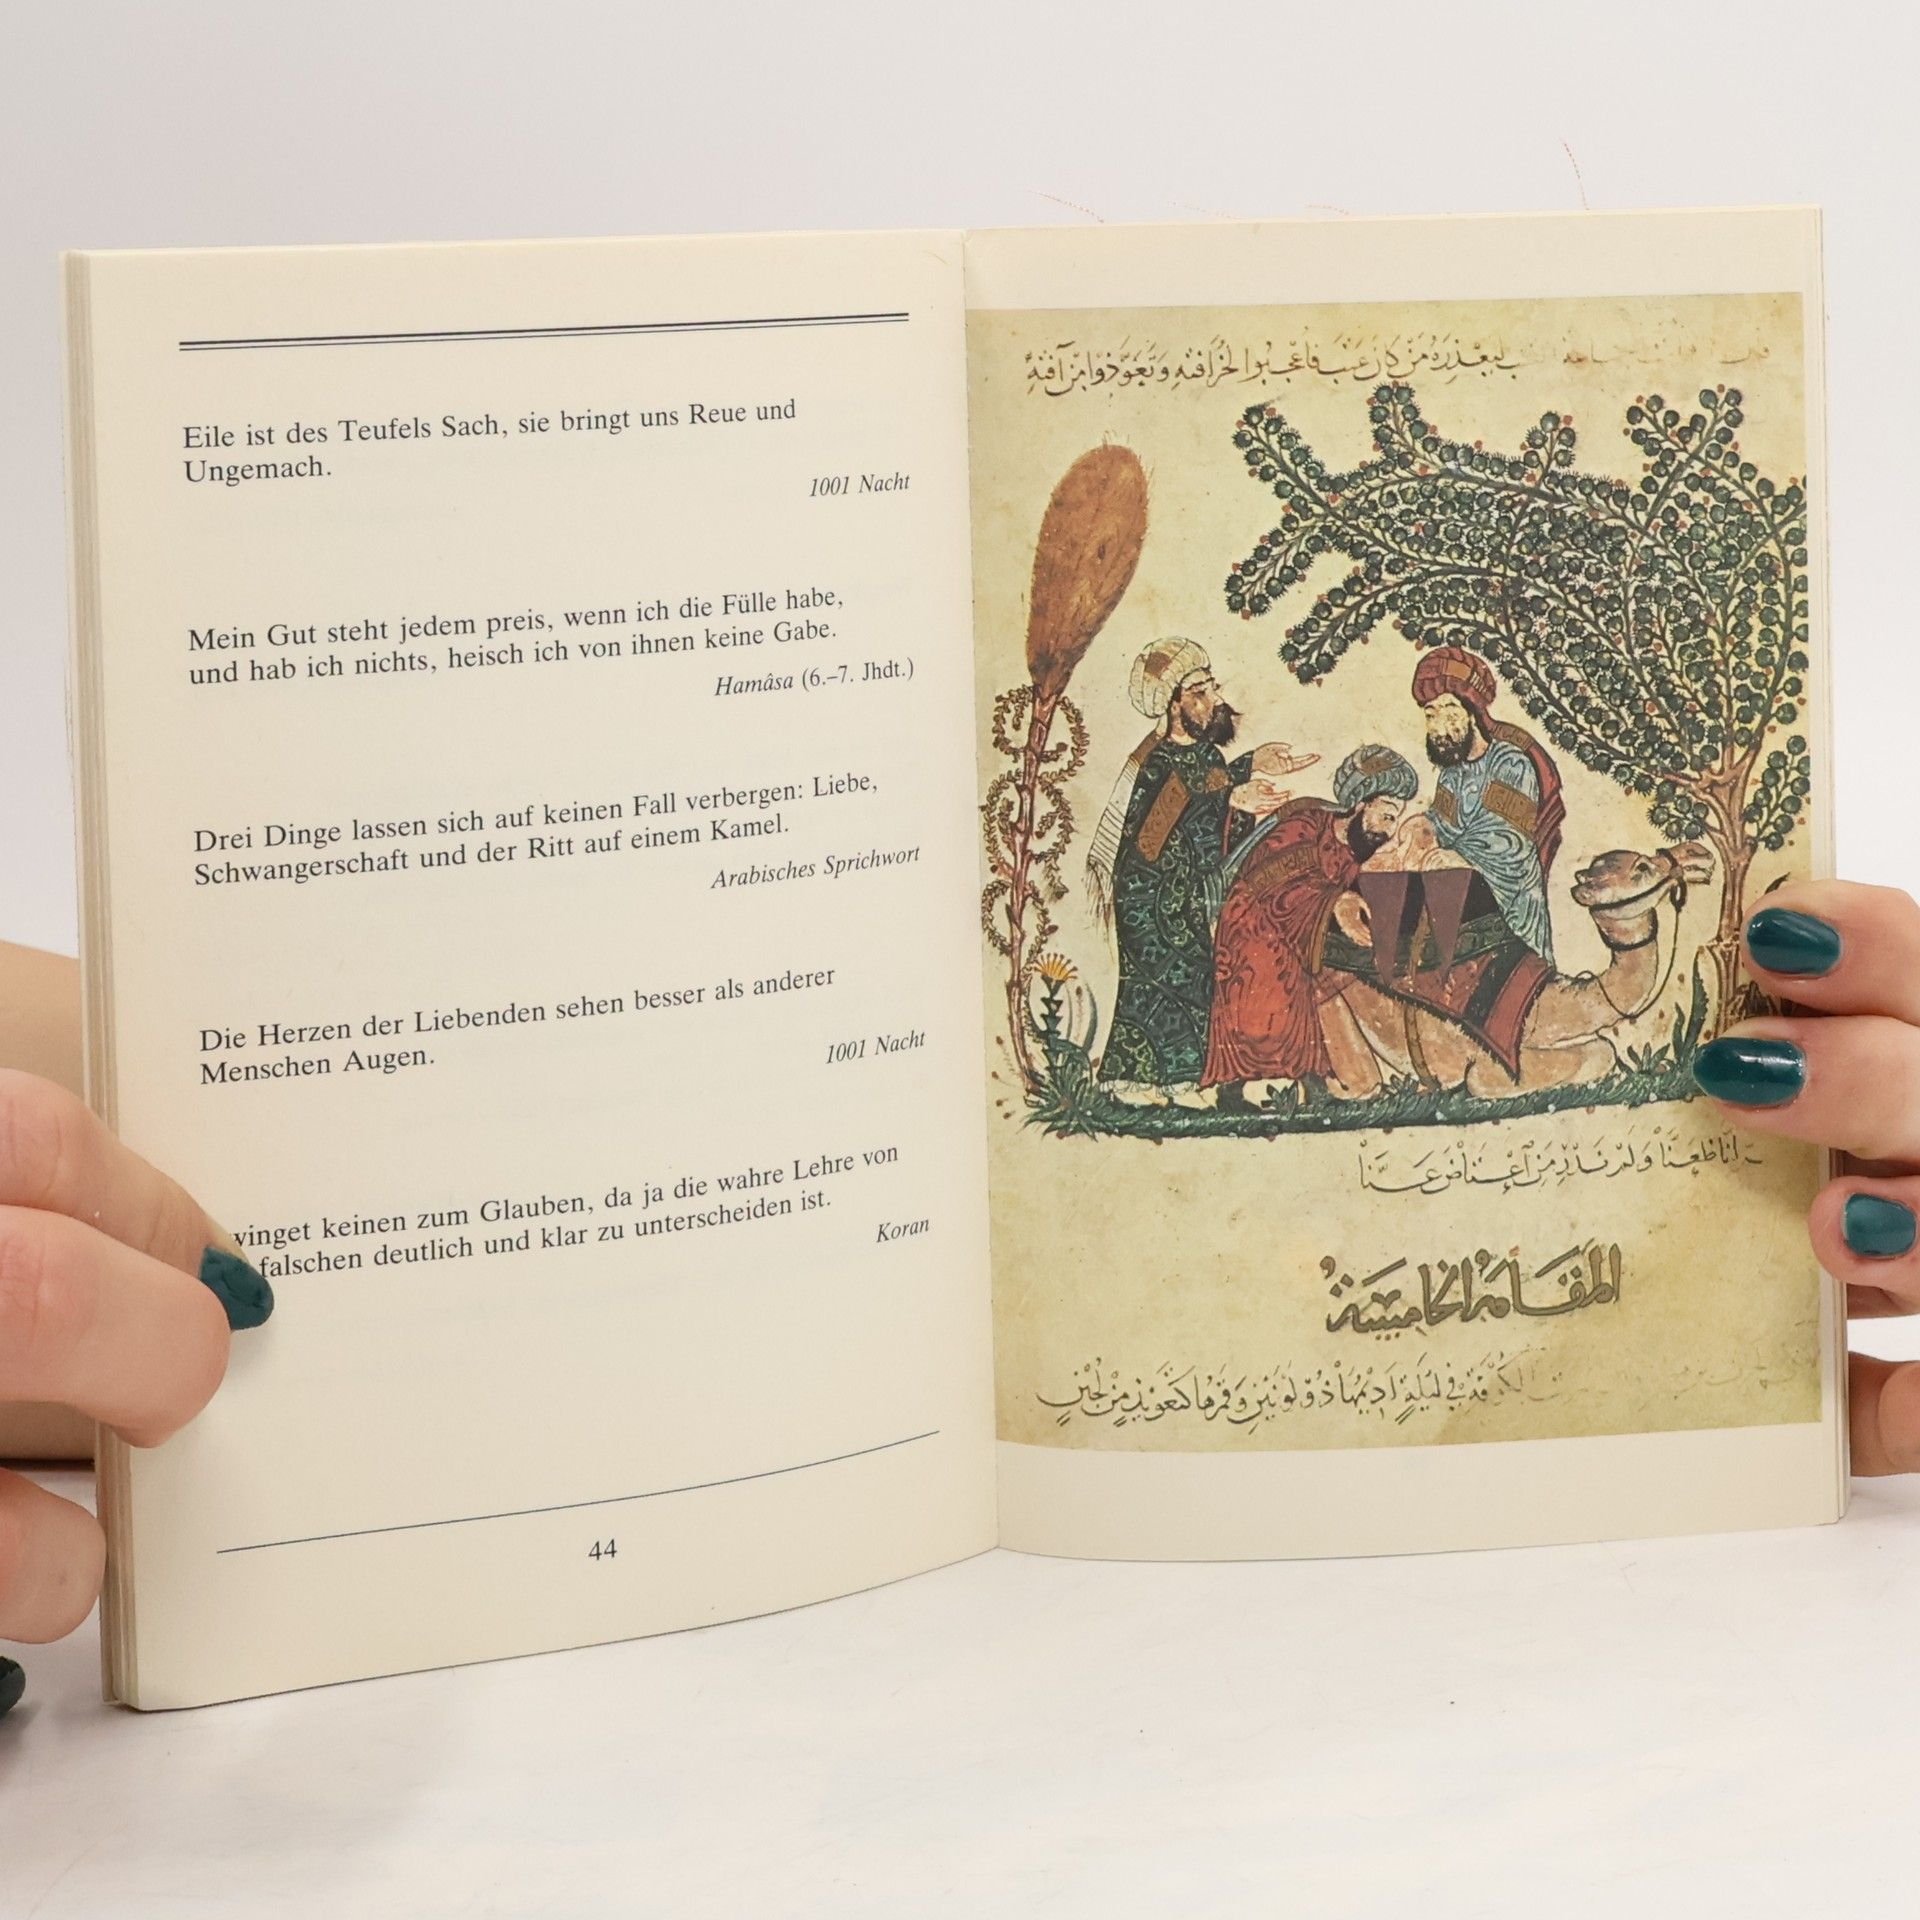 Eile ist des Teufels Sach, sie bringt uns Reue und
Ungemach.
1001 Nacht
Mein Gut steht jedem preis, wenn ich die Fülle habe,
und hab ich nichts, heisch ich von ihnen keine Gabe.
Hamâsa (6.–7. Jhdt.)
Drei Dinge lassen sich auf keinen Fall verbergen: Liebe,
Schwangerschaft und der Ritt auf einem Kamel.
Arabisches Sprichwort
Die Herzen der Liebenden sehen besser als anderer
Menschen Augen.
1001 Nacht
keinen zum Glauben, da ja die wahre Lehre von
falschen deutlich und klar zu unterscheiden ist.
Koran
44
مَنْ كَانَ عَتَبَ فَاعْجَبُوا لِخُرَافَتِهِ وَتَعَوَّذُوا مِنْ آفَتِهِ
أَنَّا ظَعَنَّا وَلَمْ نَدْرِ مَنِ اعْتَاضَ عَنَّا
المَقَامَةُ الخَامِسَةُ
الكُوفَةِ فِي لَيْلَةٍ أَدِيمُهَا ذُو لَوْنَيْنِ وَقَمَرُهَا كَتَعْوِيذٍ مِنْ لُجَيْنٍ